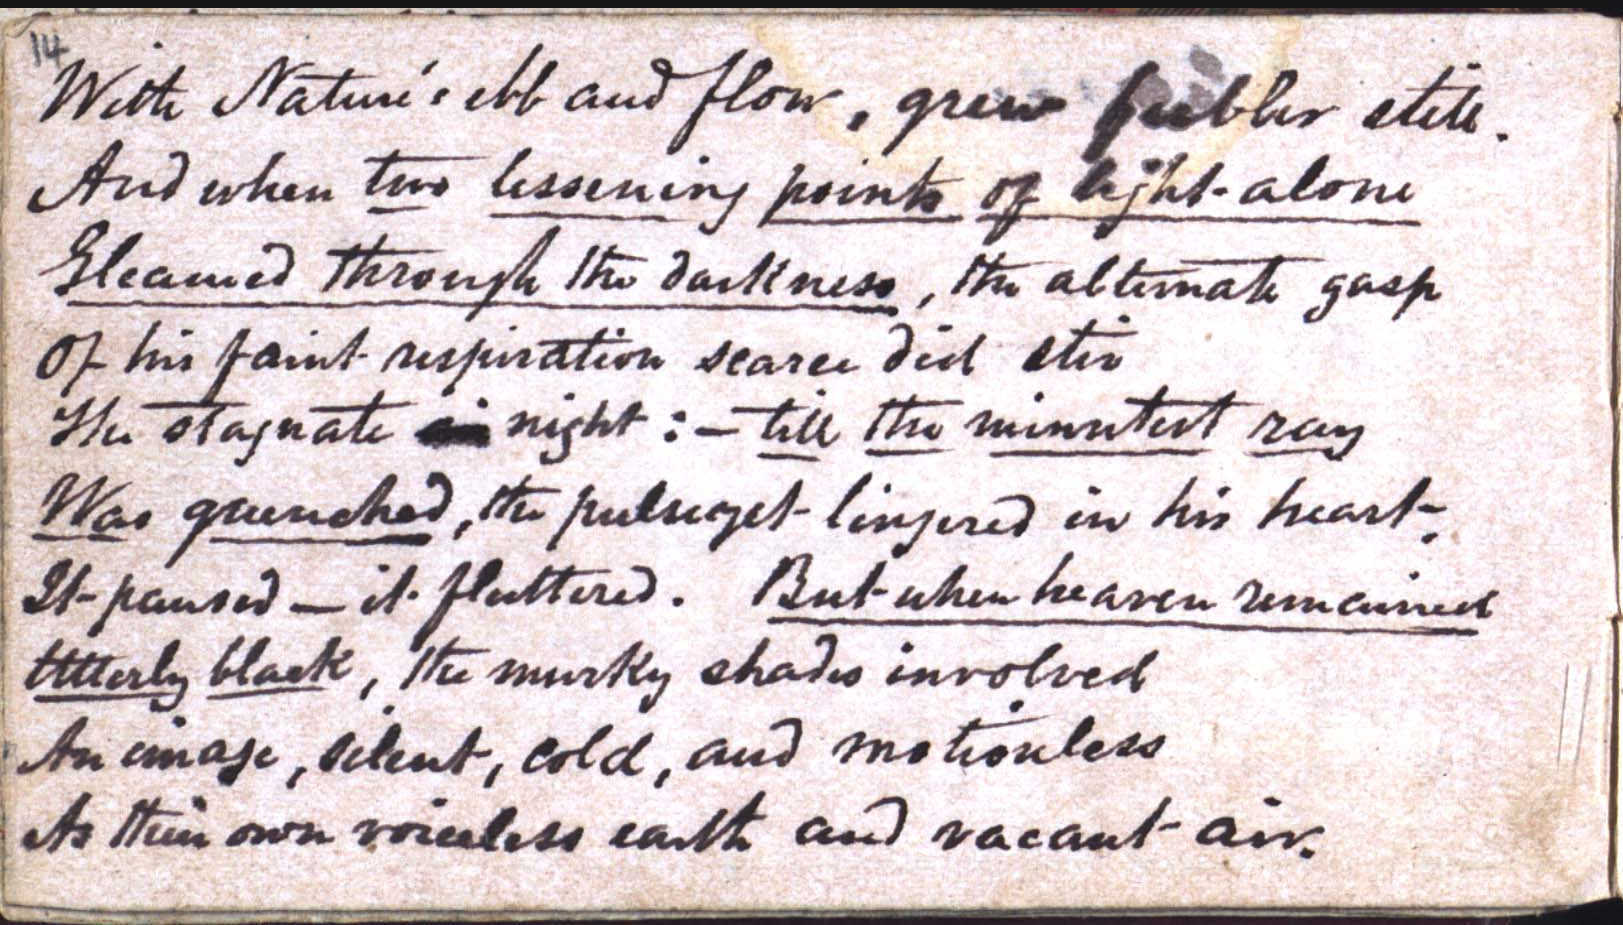 14
With Nature's ebb and flow, grew feebler still.
And when two lessening points of light alone
Gleamed through the darkness, the alternate gasp
Of his faint respiration scarce did stir
The stagnate night :– till the minutest ray
Was quenched, the pulse yet lingered in his heart.
It paused – it fluttered. But when heaven remained
Utterly black, the murky shades involved
An image, silent, cold, and motionless
As their own voiceless earth and vacant air.